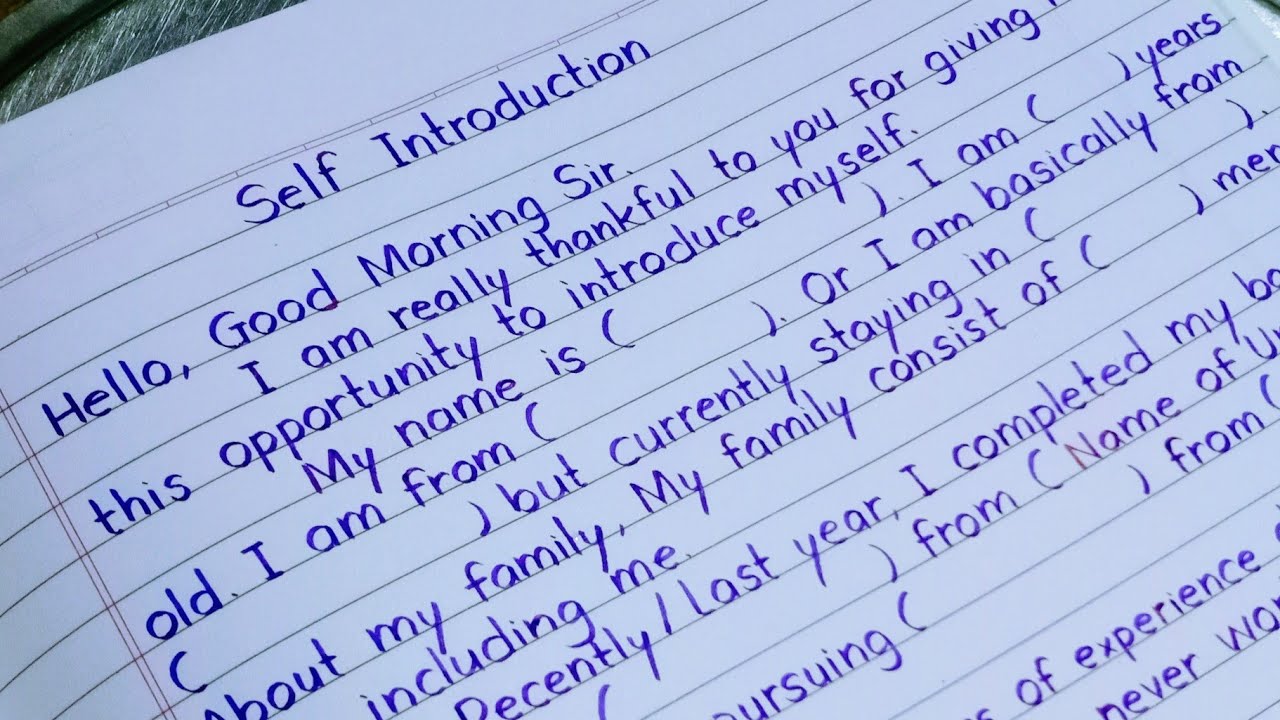 Self Introduction
Hello, Good Morning Sir.
I am really thankful to you for giving
this opportunity to introduce myself.
My name is ( ). I am ( ) years
old. I am from ( ). Or I am basically from
( ) but currently staying in ( ).
About my family, My family consist of ( ) mem
including me.
Recently/Last year, I completed my ba
( ) from (Name of Un
ursuing ( ) from (
of experience
never wor